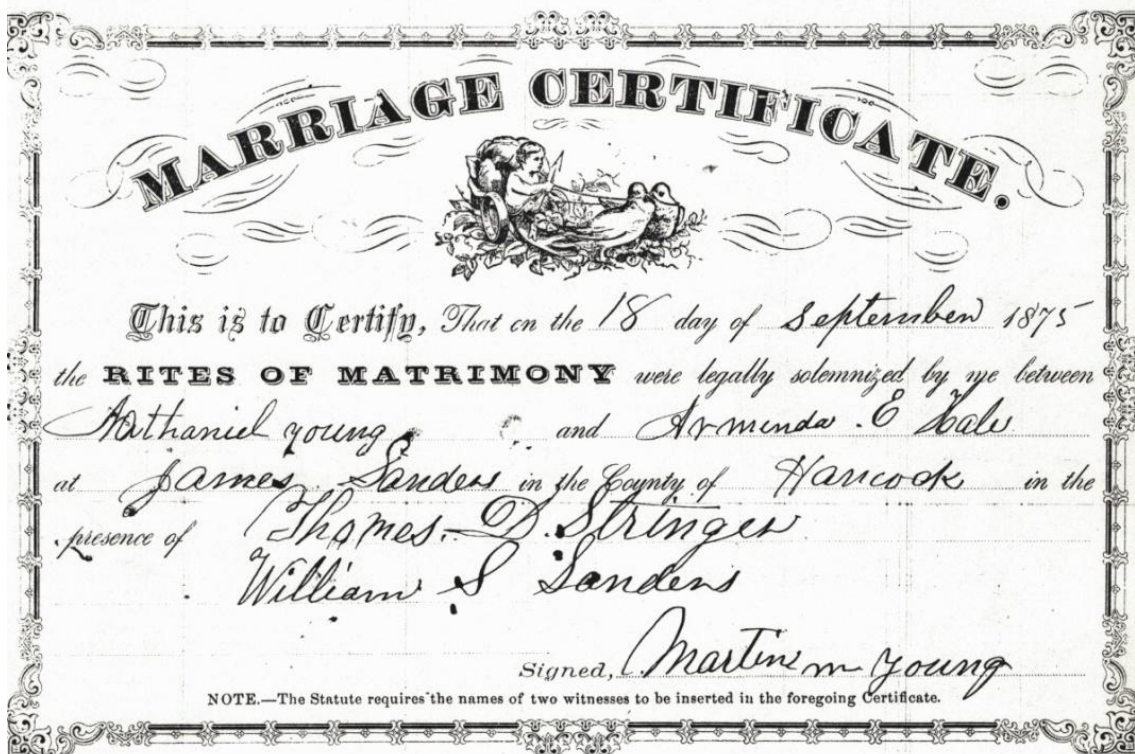 MARRIAGE CERTIFICATE.
This is to Certify, That on the 18 day of September 1875
the RITES OF MATRIMONY were legally solemnized by me between
Nathaniel young and Arminda . E Hale
at James Sanders in the County of Hancock in the
presence of Thomas. D. Stringer
William S Sanders
Signed, Martin m young
NOTE.—The Statute requires the names of two witnesses to be inserted in the foregoing Certificate.